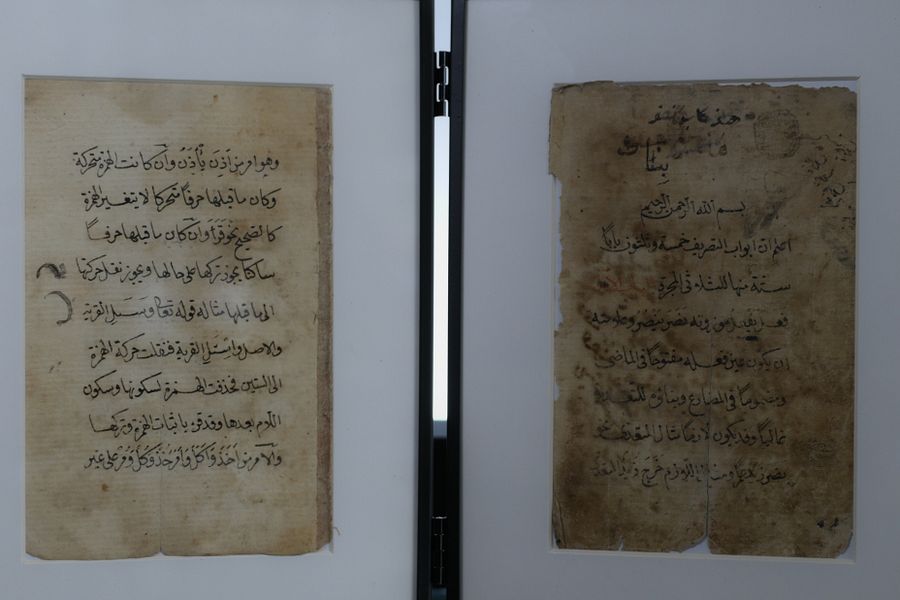 وهوا مر من اَذِنَ يَأْذَنُ وان كانت الهمزة متحركة
وكان ما قبلها حرفاً متحركا لا يتغير الهمزة
كالصحيح نحو قَرَأَ وان كان ما قبلها حرفاً
ساكنا يجوز تركها على حالها ويجوز نقل حركتها
الى ما قبلها مثاله قوله تعالى وَسَلِ القرية
والاصل واسئل القرية فنقلت حركة الهمزة
الى السين فحذفت الهمزة لسكونها وسكون
اللام بعدها وقد قرء باثبات الهمزة وتركها
والامر من اَخَذَ وَاَكَلَ وَاَمَرَ خُذْ وَكُلْ وَمُرْ على غير
بنا
بسم الله الرحمن الرحيم
اعلم ان ابواب التصريف خمسة وثلثون بابا
ستة منها للثلاثى المجرد
فعل يفعل موزونه نصر ينصر وعلامته
ان يكون عين فعله مفتوحا فى الماضى
ومضموما فى المضارع وبناؤه للتعدية
غالبا وقد يكون لازما مثال المتعدى نحو
نصر زيد عمرا ومثال اللازم خرج زيد المتعد